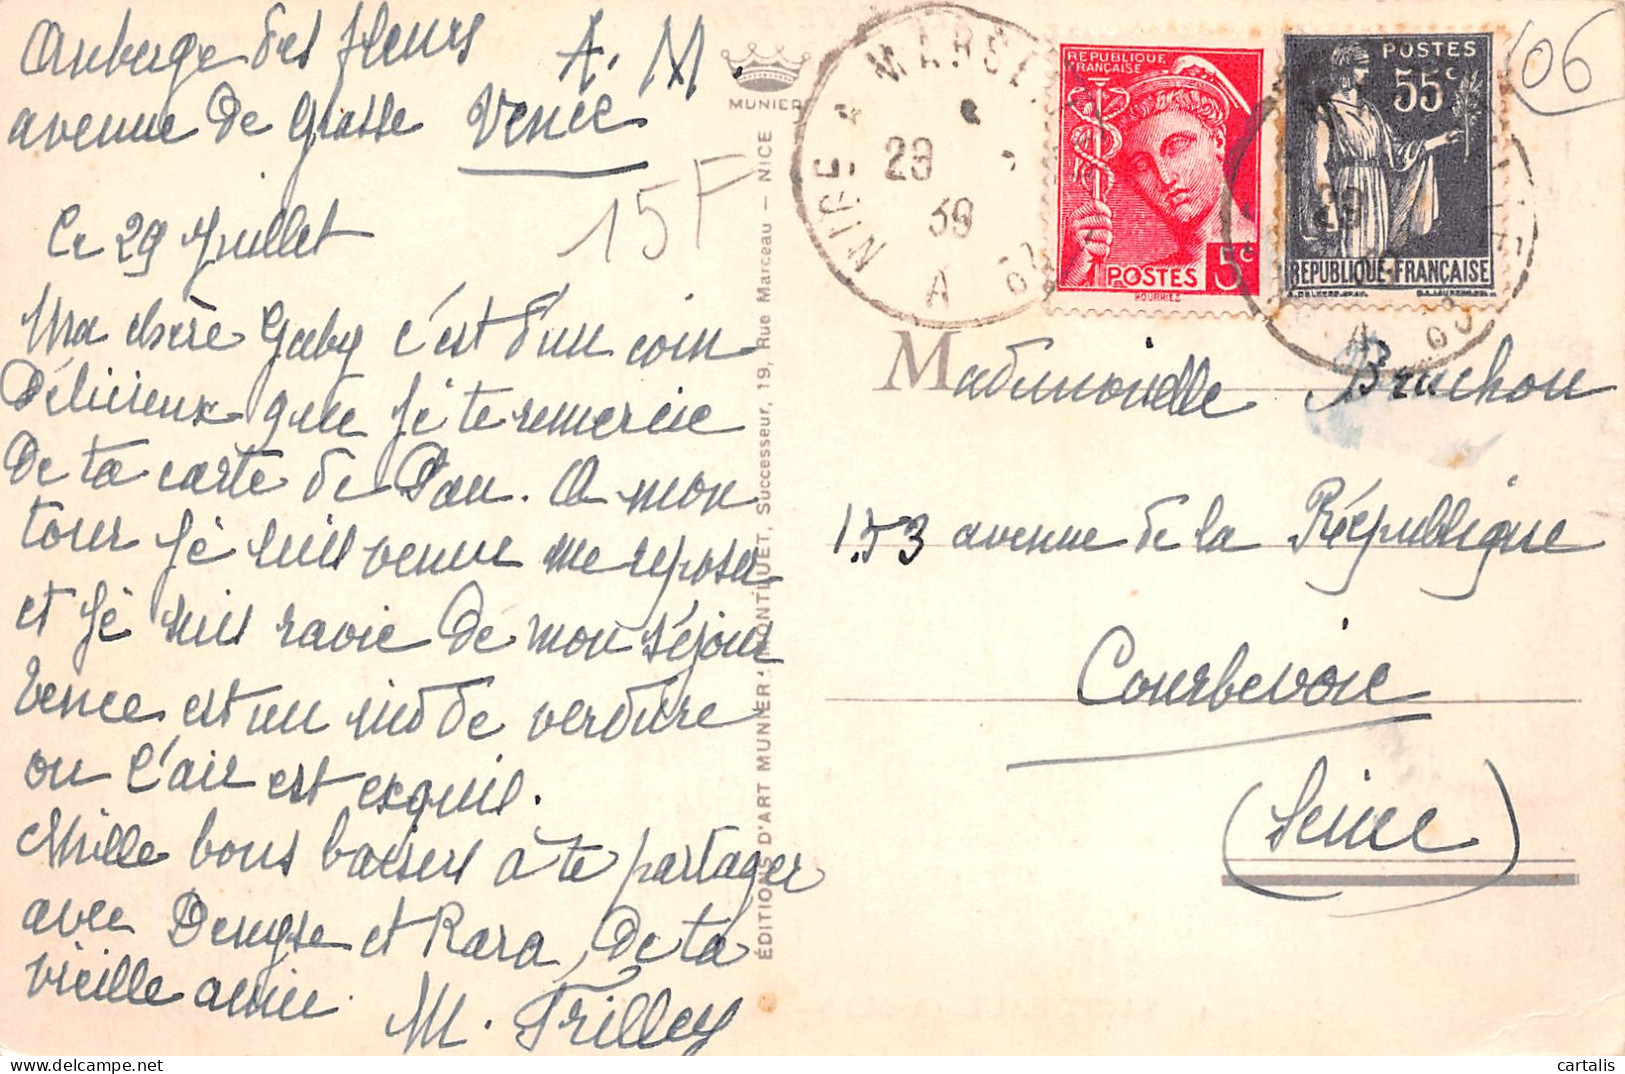 Auberge des fleurs
A. M.
avenue de Grasse Vence
15F
Ce 29 Juillet
Ma chère Gaby c'est d'un coin
Délicieux que je te remercie
De ta carte de Pau. A mon
tour je suis venue me reposer
et je suis ravie de mon séjour
Vence est un nid de verdure
ou l'air est exquis.
Mille bons baisers à te partager
avec Denyse et Rara, De ta
vieille amie
M. Trilley
MUNIER
ÉDITIONS D'ART MUNIER: MONTLUET, Successeur, 19, Rue Marceau - NICE
NICE A MARSEILLE
29
39
A
RÉPUBLIQUE
FRANÇAISE
POSTES 5c
HOURRIEZ
POSTES
55c
RÉPUBLIQUE-FRANÇAISE
29
06
Mademoiselle Bruchon
153 avenue de la République
Courbevoie
(Seine)
cartalis